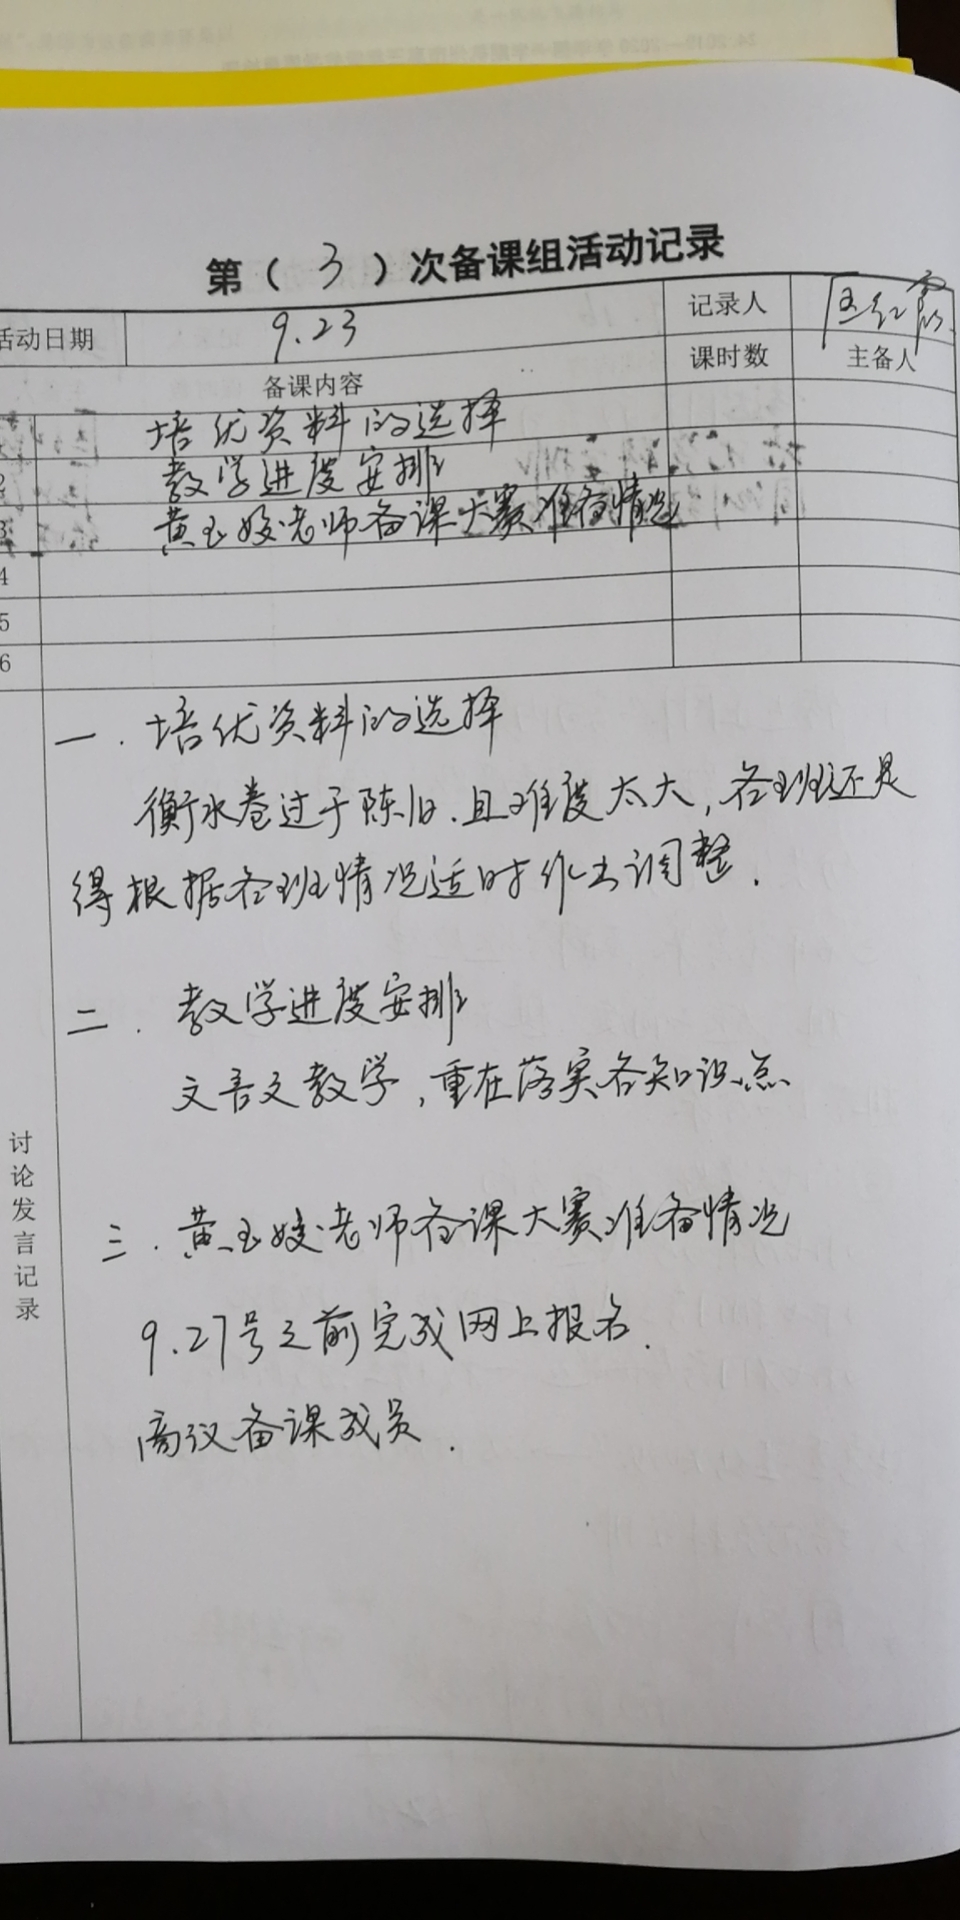 第（3）次备课组活动记录
活动日期 9.23 记录人
备课内容 课时数 主备人
培优资料的选择
2 教学进度安排
3 黄玉姣老师备课大赛准备情况
4
5
6
讨论发言记录
一．培优资料的选择
衡水卷过于陈旧．且难度太大，各班还是
得根据各班情况适时作出调整．
二．教学进度安排
文言文教学，重在落实各知识点
三．黄玉姣老师备课大赛准备情况
9.27号之前完成网上报名．
商议备课成员．